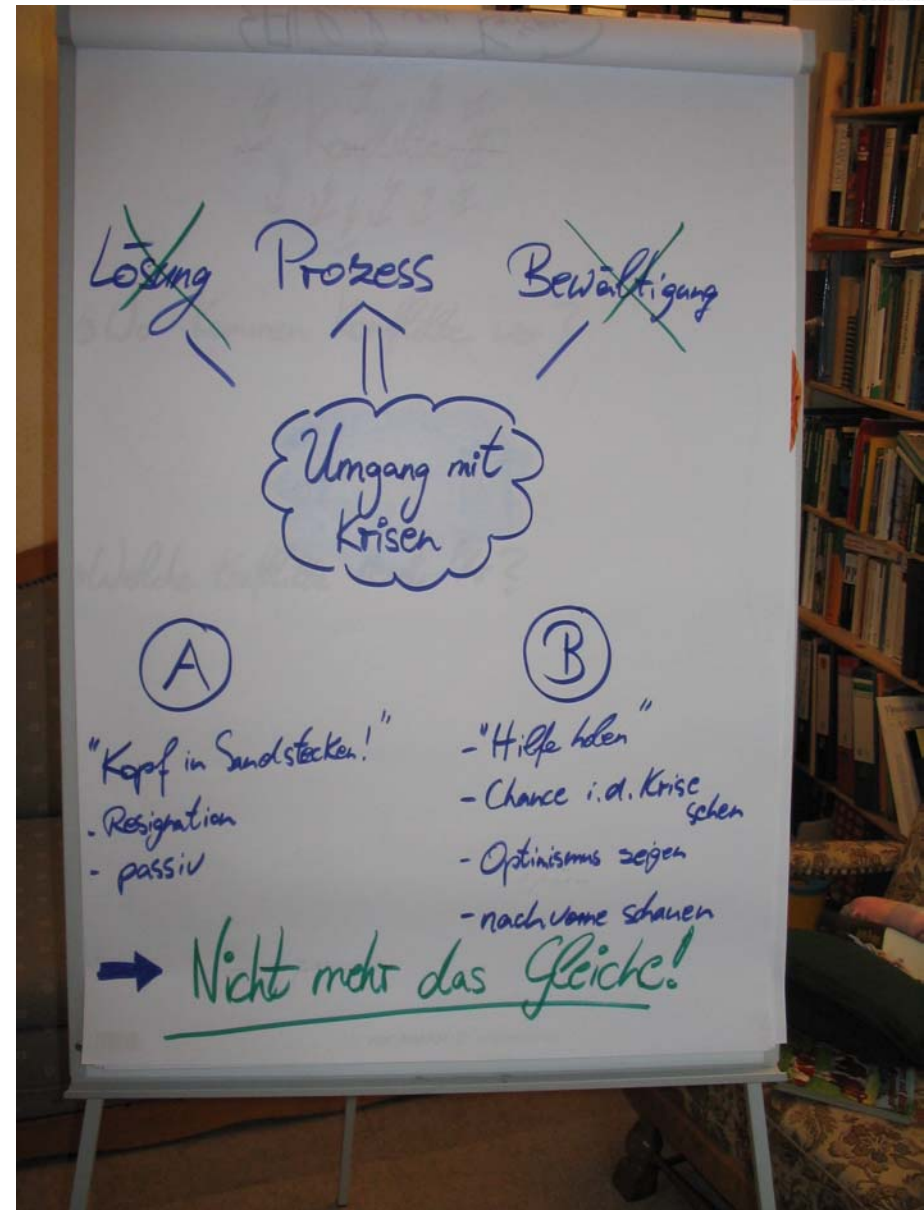 Lösung Prozess Bewältigung
Umgang mit
Krisen
A
"Kopf in Sand stecken!"
- Resignation
- passiv
B
- "Hilfe holen"
- Chance i.d. Krise
sehen
- Optimismus zeigen
- nach vorne schauen
→ Nicht mehr das Gleiche!